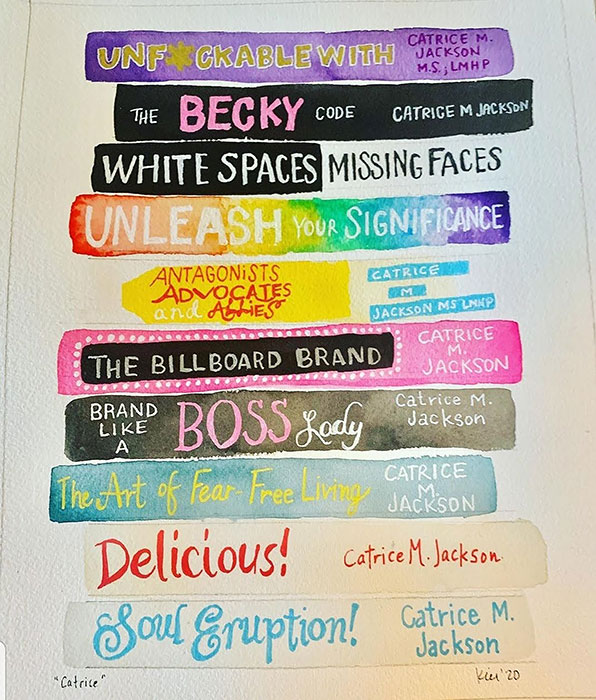 UNF*CKABLE WITH CATRICE M.
JACKSON
M.S., LMHP
THE BECKY CODE CATRICE M JACKSON
WHITE SPACES MISSING FACES
UNLEASH YOUR SIGNIFICANCE
ANTAGONISTS
ADVOCATES
and ALLIES
CATRICE
M
JACKSON MS LMHP
THE BILLBOARD BRAND
CATRICE
M.
JACKSON
BRAND
LIKE
A
BOSS Lady
Catrice M.
Jackson
The Art of Fear-Free Living
CATRICE
M.
JACKSON
Delicious! Catrice M. Jackson
Soul Eruption! Catrice M.
Jackson
"Catrice"
'20